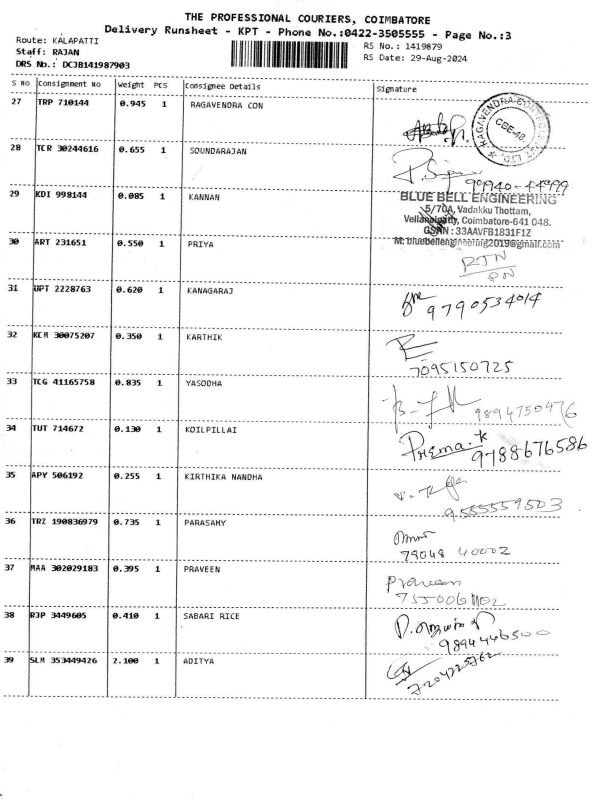 THE PROFESSIONAL COURIERS, COIMBATORE
Delivery Runsheet - KPT - Phone No.:0422-3505555 - Page No.:3
Route: KALAPATTI
RS No.: 1419879
Staff: RAJAN
RS Date: 29-Aug-2024
DRS No.: DCJB141987903
S NO Consignment No Weight PCS Consignee Details Signature
27 TRP 710144 0.945 1 RAGAVENDRA CON
28 TCR 30244616 0.655 1 SOUNDARAJAN
99940-44999
29 KDI 998144 0.085 1 KANNAN
BLUE BELL ENGINEERING
5/70A, Vadakku Thottam,
Vellanaipatty, Coimbatore-641 048.
GSTIN : 33AAVFB1831F1Z
M: bluebellengineering2019@gmail.com
30 ART 231651 0.550 1 PRIYA
RTN
PN
31 UPT 2228763 0.620 1 KANAGARAJ
9790534014
32 KCM 30075207 0.350 1 KARTHIK
7095150725
33 TCG 41165758 0.835 1 YASODHA
9894750476
34 TUT 714672 0.130 1 KOILPILLAI
Prema.K 9788676586
35 APY 506192 0.255 1 KIRTHIKA NANDHA
9555559503
36 TRZ 190836979 0.735 1 PARASAMY
79048 40002
37 MAA 302029183 0.395 1 PRAVEEN
Praveen
38 RJP 3449605 0.410 1 SABARI RICE
9894446500
39 SLM 353449426 2.100 1 ADITYA
7204725762